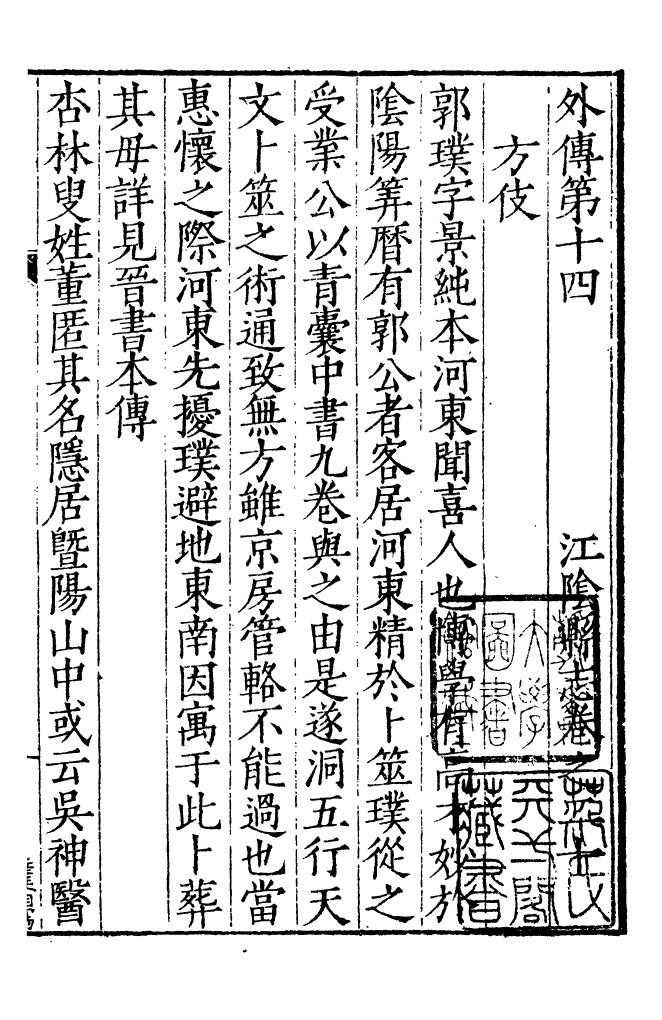 外傳第十四 江陰縣志卷之
方伎
郭璞字景純本河東聞喜人也博學有高才妙於
陰陽筭曆有郭公者客居河東精於卜筮璞從之
受業公以青囊中書九卷與之由是遂洞五行天
文卜筮之術通致無方雖京房管輅不能過也當
惠懷之際河東先擾璞避地東南因寓于此卜葬
其母詳見晉書本傳
杏林叟姓董匿其名隱居暨陽山中或云吳神醫
大學
圖書
范氏
天一閣
藏書